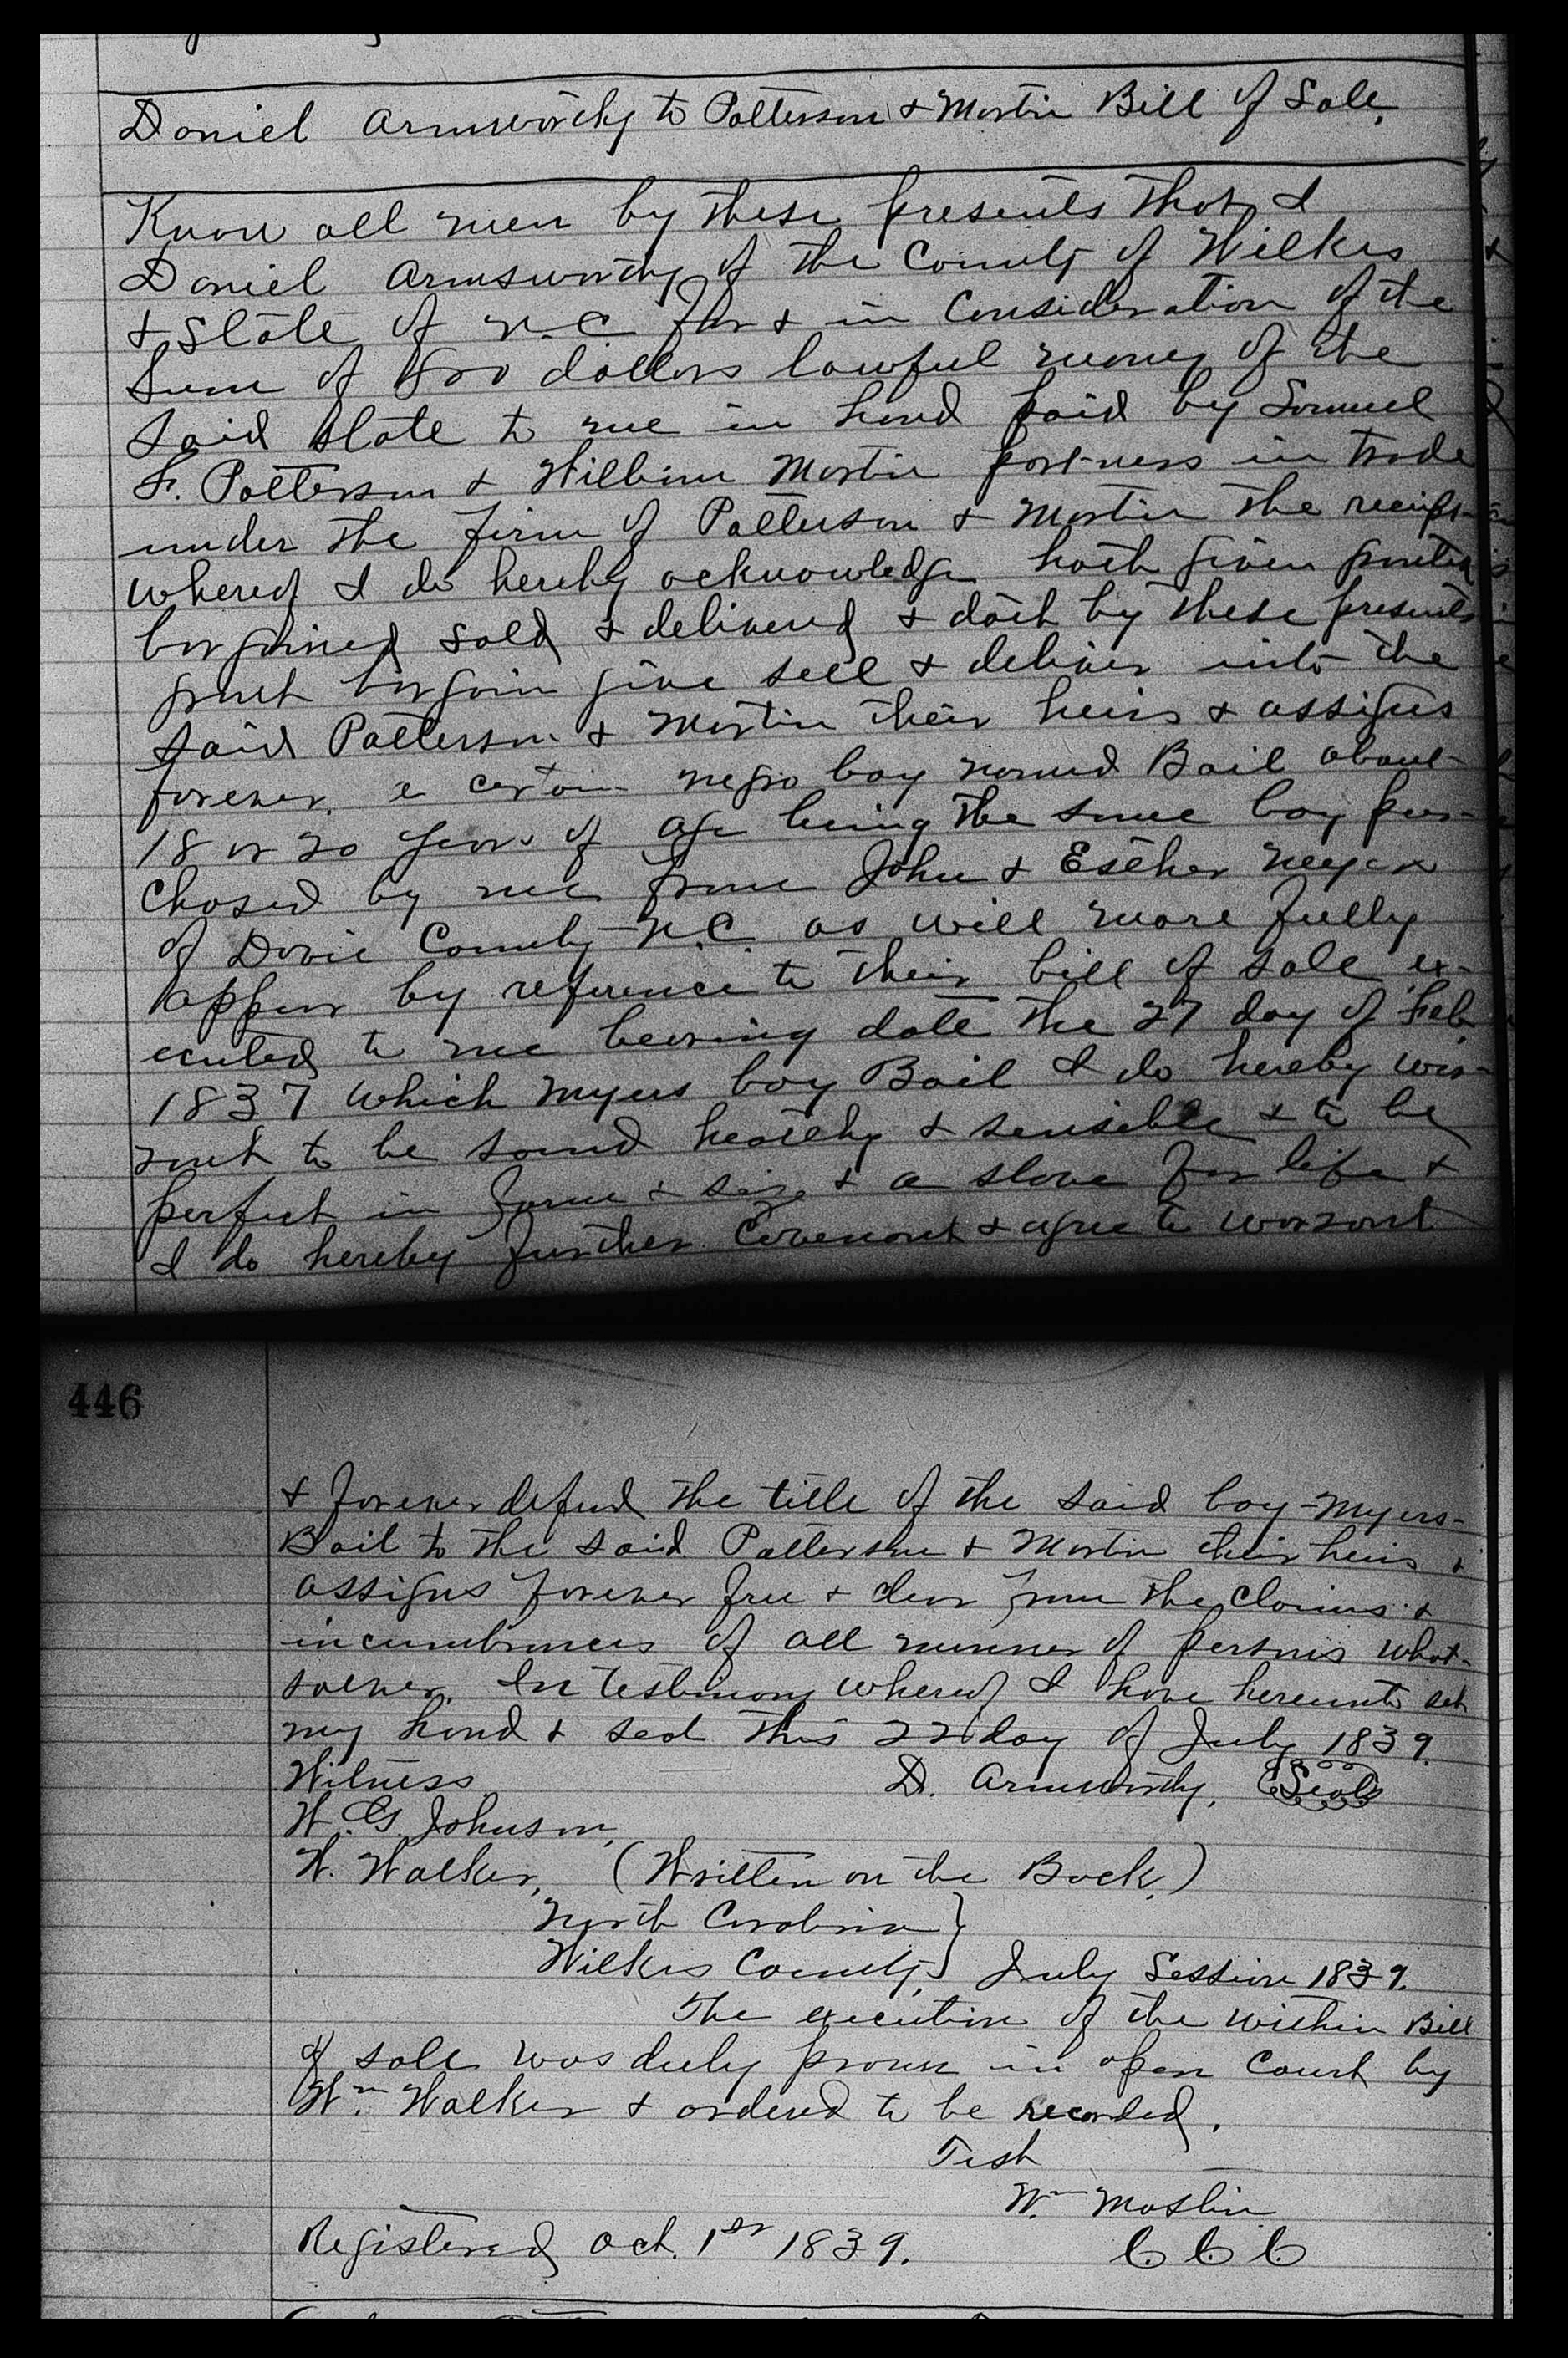 Daniel Armsworthy to Patterson & Martin Bill of Sale.
Know all men by these presents that I
Daniel Armsworthy of the County of Wilkes
& State of N.C. for & in Consideration of the
Sum of 800 dollars lawful money of the
said state to me in hand paid by Samuel
F. Patterson & William Martin partners in trade
under the firm of Patterson & Martin the receipt
whereof I do hereby acknowledge hath given granted
bargained sold & delivered & doth by these presents
grant bargain give sell & deliver into the
said Patterson & Martin their heirs & assigns
forever, a certain negro boy named Bail about
18 or 20 years of age being the same boy pur-
chased by me from John & Esther Myers
of Davie County N.C. as will more fully
appear by reference to their bill of sale ex-
ecuted to me bearing date the 27 day of Feb.
1837 which Myers boy Bail I do hereby war-
rant to be sound healthy & sensible & to be
perfect in form & size & a slave for life &
I do hereby further Covenant & agree to warrant
446
& forever defend the title of the said boy Myers-
Bail to the said Patterson & Martin their heirs &
assigns forever free & clear from the claims &
incumbrances of all manner of persons what-
soever. In testimony whereof I have hereunto set
my hand & seal this 22 day of July 1839.
Witness D. Armsworthy, Seal
W. G. Johnson,
W. Walker, (Written on the Back.)
North Carolina }
Wilkes County, } July Session 1839.
The execution of the within Bill
of sale was duly proven in open Court by
Wm. Walker & ordered to be recorded.
Test
Wm Mastin
Registered Oct. 1st 1839. C. C. C